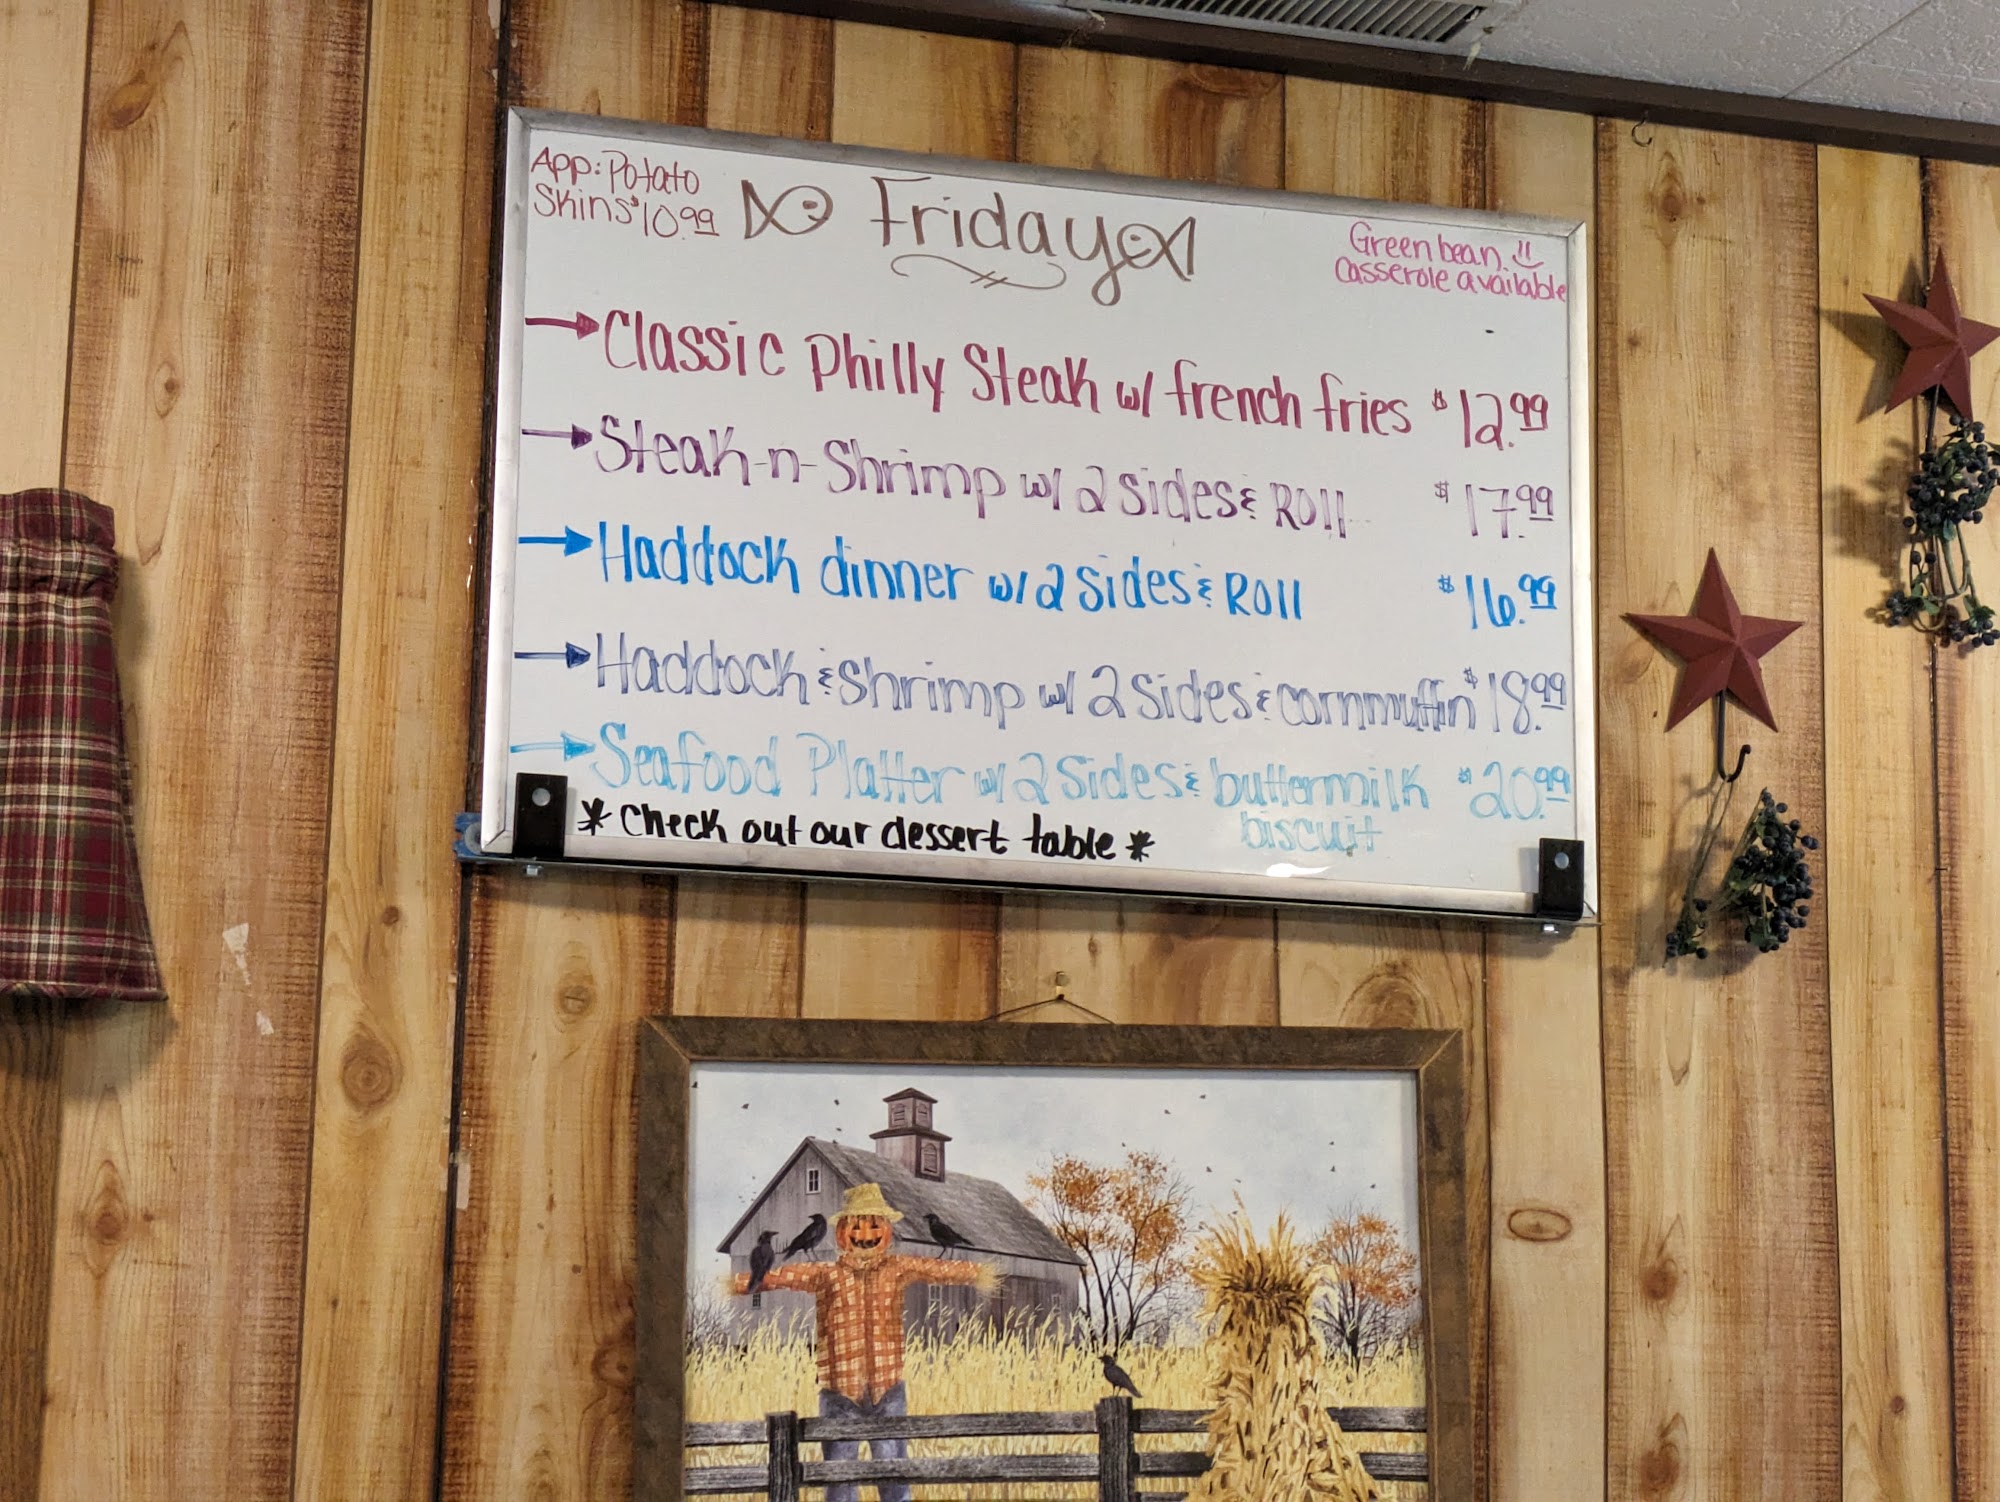 App: Potato
Skins $10.99
Friday
Green bean
Casserole available
Classic Philly Steak w/ french fries $12.99
Steak-n-Shrimp w/ 2 sides & Roll $17.99
Haddock dinner w/ 2 sides & Roll $16.99
Haddock & Shrimp w/ 2 sides & cornmuffin $18.99
Seafood Platter w/ 2 sides & buttermilk $20.99
biscuit
* Check out our dessert table *